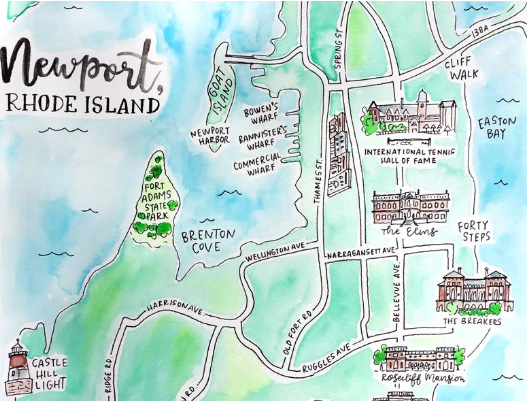 Newport,
RHODE ISLAND
GOAT
ISLAND
NEWPORT
HARBOR
BOWEN'S
WHARF
BANNISTER'S
WHARF
COMMERCIAL
WHARF
THAMES ST.
SPRING ST
138A
CLIFF
WALK
EASTON
BAY
INTERNATIONAL TENNIS
HALL OF FAME
FORT
ADAMS
STATE
PARK
BRENTON
COVE
The Elms
FORTY
STEPS
WELLINGTON AVE
NARRAGANSETT AVE
BELLEVUE AVE
THE BREAKERS
HARRISON AVE
OLD FORT RD.
RUGGLES AVE
Rosecliff Mansion
CASTLE
HILL
LIGHT
RIDGE RD.
RD.